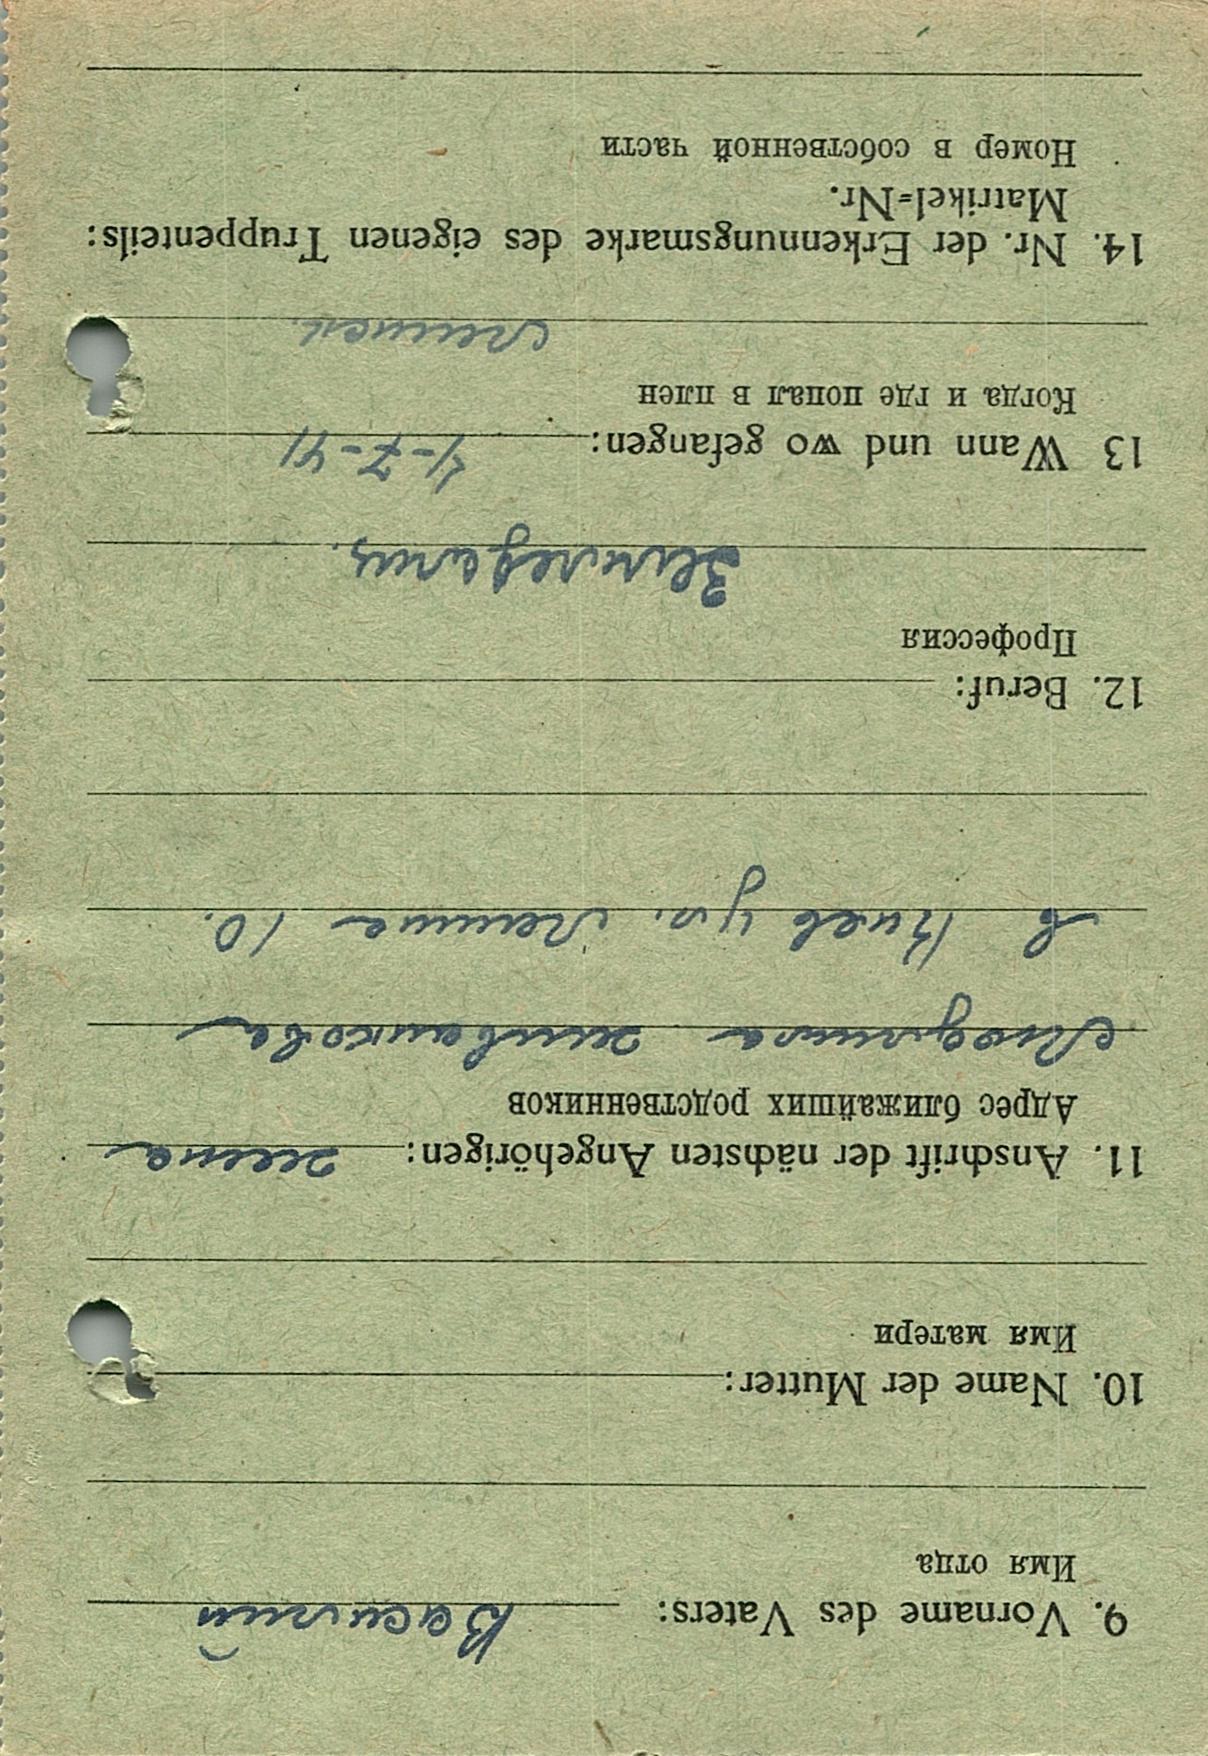 9. Vorname des Vaters: Василий
Имя отца
10. Name der Mutter:
Имя матери
11. Anschrift der nächsten Angehörigen: жена
Адрес ближайших родственников
Людмила
г. Киев ул. Ленина 10.
12. Beruf:
Профессия
Земледелец.
13 Wann und wo gefangen: 4-7-41
Когда и где попал в плен
14. Nr. der Erkennungsmarke des eigenen Truppenteils:
Matrikel=Nr.
Номер в собственной части